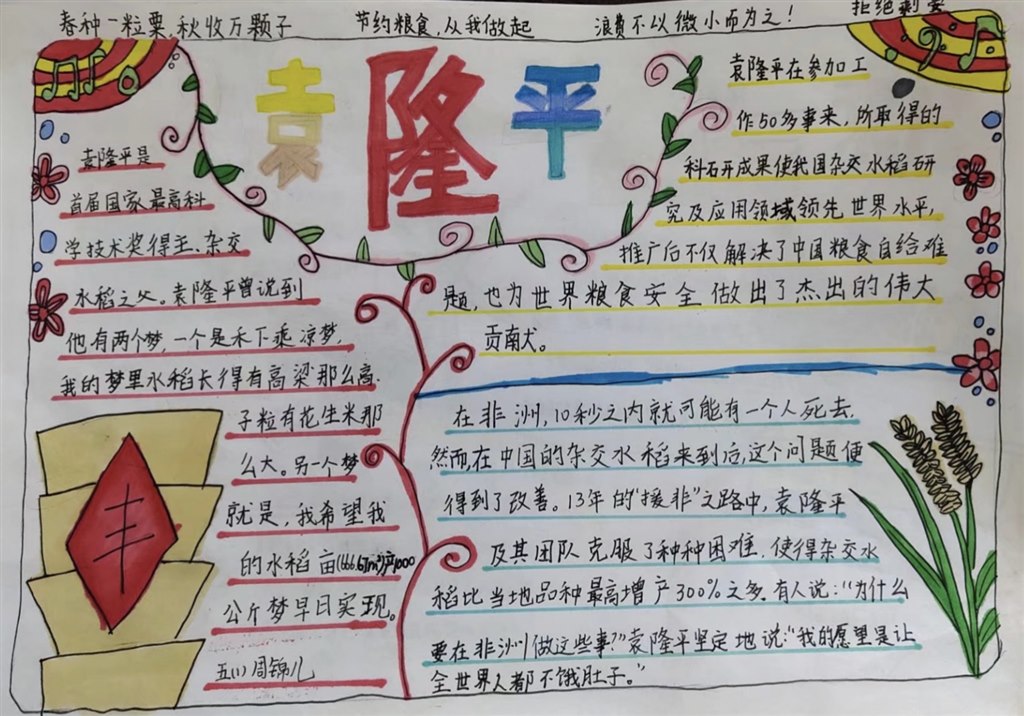 春种一粒粟,秋收万颗子
节约粮食,从我做起
浪费不以微小而为之!
拒绝剩宴
袁隆平
袁隆平是
首届国家最高科
学技术奖得主、杂交
水稻之父。袁隆平曾说到
他有两个梦,一个是禾下乘凉梦,
我的梦里水稻长得有高粱那么高.
子粒有花生米那
么大。另一个梦
就是,我希望我
的水稻亩(666.67m²)产1000
公斤梦早日实现。
五(1)周锦儿
丰
袁隆平在参加工
作50多事来,所取得的
科石开成果使我国杂交水稻研
究及应用领域领先世界水平,
推广后不仅解决了中国粮食自给难
题,也为世界粮食安全做出了杰出的伟大
贡南犬。
在非洲,10秒之内就可能有一个人死去.
然而在中国的杂交水稻来到后,这个问题便
得到了改善。13年的"援非"之路中,袁隆平
及其团队克服了种种困难.使得杂交水
稻比当地品种最高增产300%之多.有人说:"为什么
要在非洲做这些事?"袁隆平坚定地说:"我的愿望是让
全世界人都不饿肚子。"